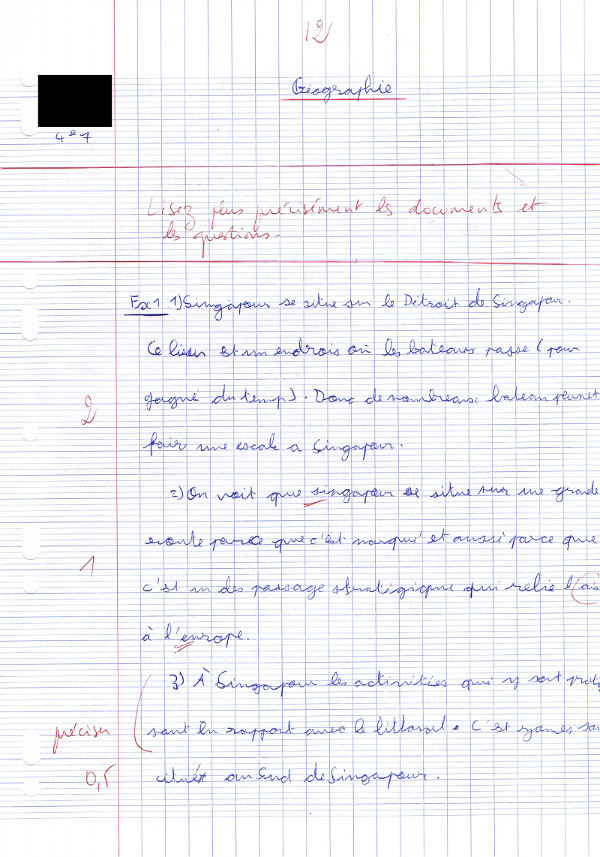 12
Géographie
4e7
Lisez plus précisément les documents et
les questions.
Ex1 1) Singapour se situe sur le Détroit de Singapour.
Ce lieu est un endrois où les bateaux passe (pour
2
gagné du temps). Donc de nombreux bateau peuvent
fair une escale a Singapour.
2) On voit que singapour se situe sur une grande
route parce que c'est marqué et aussi parce que
1
c'est un des passage stratégique qui relie l'
à l'europe.
3) À Singapour les activitées qui y sont
préciser
sont en rapport avec le littoral. C'est
0,5
au Sud de Singapour.